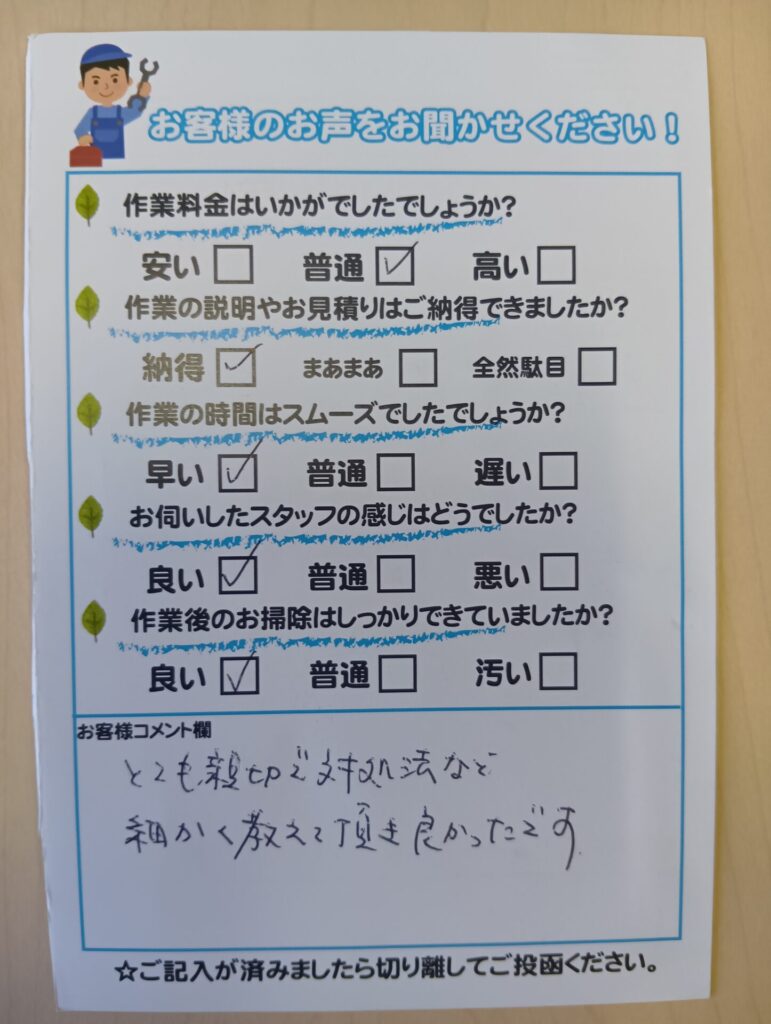 お客様のお声をお聞かせください！
作業料金はいかがでしたでしょうか？
安い □ 普通 ☑ 高い □
作業の説明やお見積りはご納得できましたか？
納得 ☑ まあまあ □ 全然駄目 □
作業の時間はスムーズでしたでしょうか？
早い ☑ 普通 □ 遅い □
お伺いしたスタッフの感じはどうでしたか？
良い ☑ 普通 □ 悪い □
作業後のお掃除はしっかりできていましたか？
良い ☑ 普通 □ 汚い □
お客様コメント欄
とても親切で対処法など
細かく教えて頂き良かったです
☆ご記入が済みましたら切り離してご投函ください。